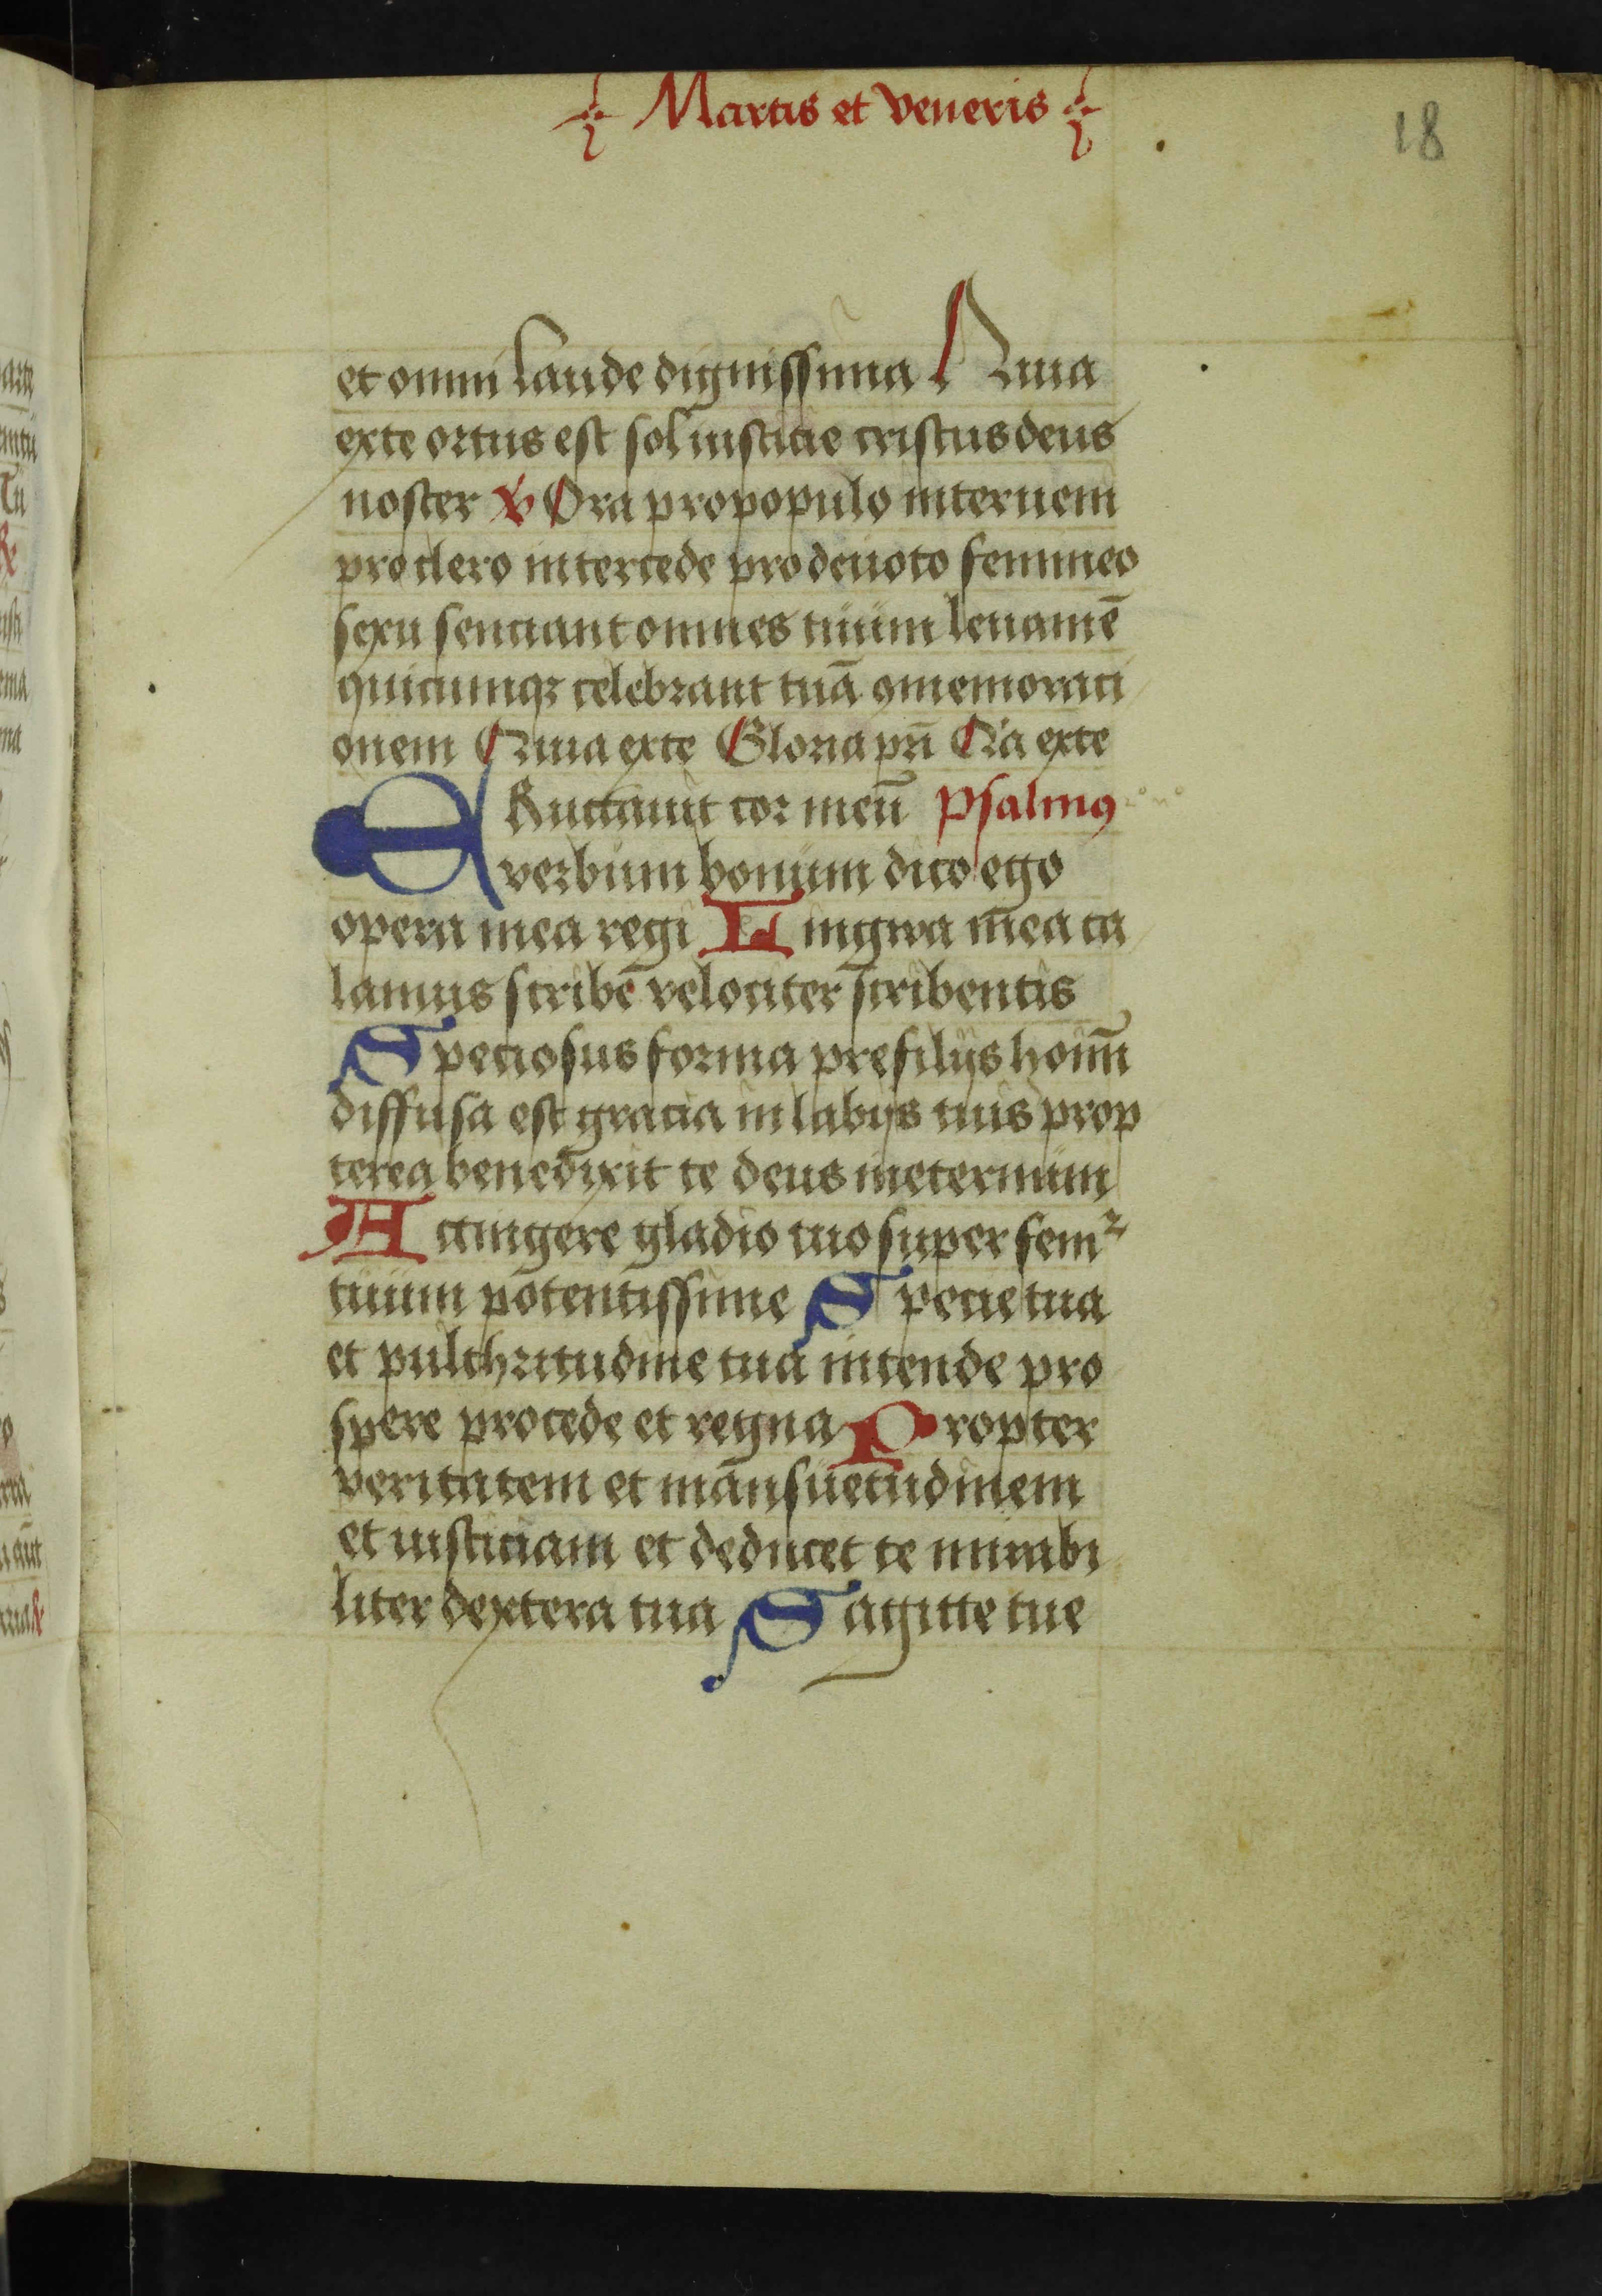 Martis et veneris
18
et omni laude dignissima Quia
ex te ortus est sol iusticie cristus deus
noster v Ora pro populo interueni
pro clero intercede pro deuoto femineo
sexu senciant omnes tuum leuamē
quicumqz celebrant tuā ꝯmemoraci
onem Quia ex te Gloria pri̅ Qi̅a ex te
ERuctauit cor meū Psalmꝰ
verbum bonum dico ego
opera mea regi Lingwa mea ca
lamus scribe velociter scribentis
Speciosus forma pre filijs hoim̅
diffusa est gracia in labijs tuis prop
terea benedixit te deus in eternum
Accingere gladio tuo super fem²
tuum potentissime Specie tua
et pulchritudine tua intende pro
spere procede et regna Propter
veritatem et mansuetudinem
et iusticiam et deducet te mirabi
liter dextera tua Sagitte tue